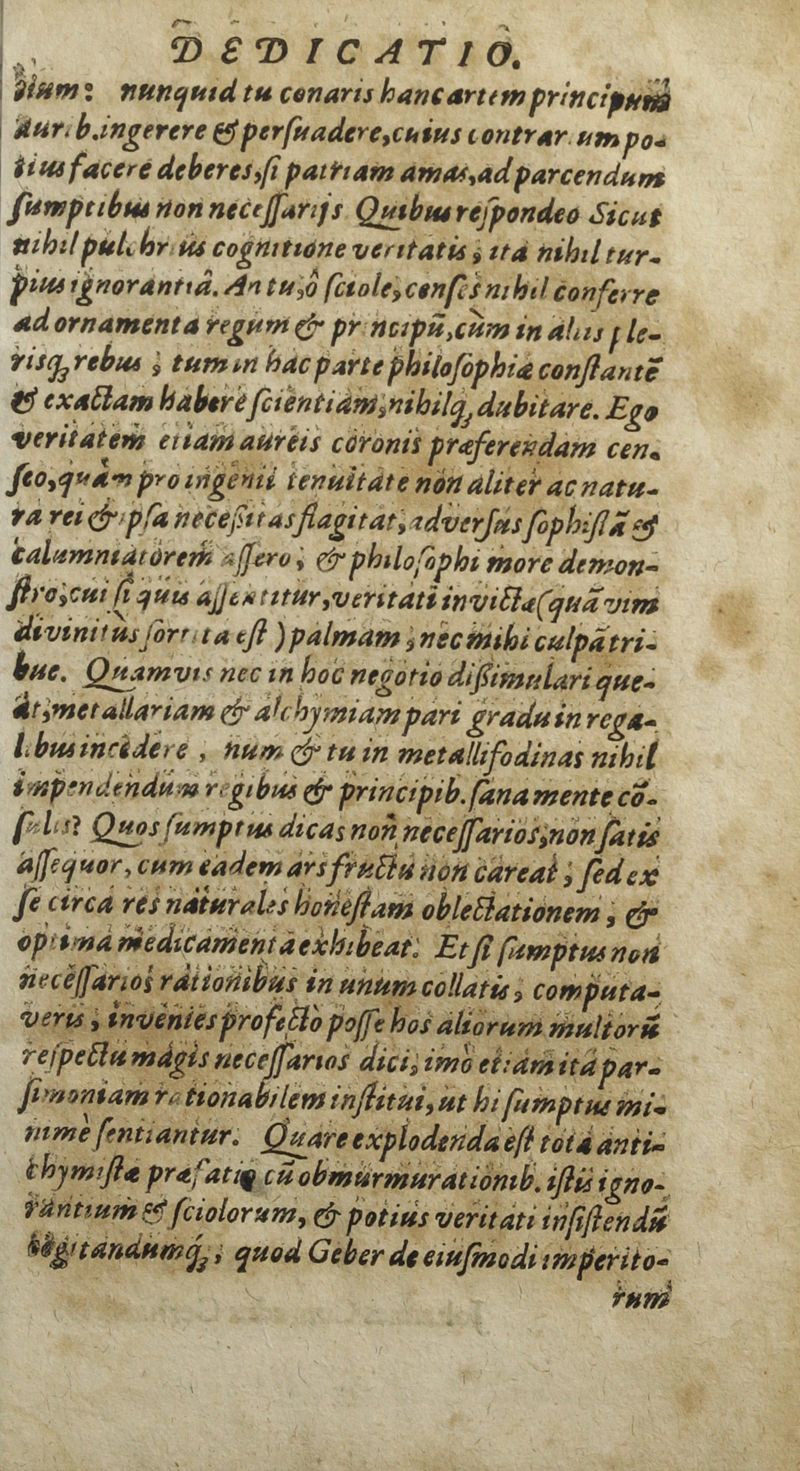 DEDICATIO.
dium: nunquid tu conaris hanc artem principum
aurib. ingerere & persuadere, cuius contrarium po-
tius facere deberes, si patriam amas, ad parcendum
sumptibus non necessarijs Quibus respondeo Sicut
nihil pulchrius cognitione veritatis; ita nihil tur-
pius ignorantiâ. An tu, ô sciole, censes nihil conferre
ad ornamenta regum & principũ, cùm in aliis ple-
risq; rebus; tum in hac parte philosophiæ constantẽ
& exactam habere scientiam, nihilq; dubitare. Ego
veritatem etiam aureis coronis præferendam cen-
seo, quàm pro ingenii tenuitate non aliter ac natu-
ra rei & ipsa necessitas flagitat, adversus sophistã &
calumniatorem assero; & philosophi more demon-
stro, cui si quis assentitur, veritati invictæ (quã vim
divinitùs sortita est) palmam, nec mihi culpã tri-
bue. Quamvis nec in hoc negotio dissimulari que-
at, metallariam & alchymiam pari gradu in rega-
libus incedere, num & tu in metallifodinas nihil
impendendum regibus & principib. sana mente cõ-
sulis? Quos sumptus dicas non necessarios, non satis
assequor, cum eadem ars fructu non careat; sed ex
se circa res naturales honestam oblectationem, &
optima medicamenta exhibeat. Et si sumptus non
necessarios rationibus in unum collatis, computa-
veris, invenies profectò posse hos aliorum multorũ
respectu magis necessarios dici, imò etiam ita par-
simoniam rationabilem institui, ut hi sumptus mi-
nimè sentiantur. Quare explodenda est tota anti-
chymistæ præfatio cũ obmurmurationib. istis igno-
rantium & sciolorum, & potius veritati insistendũ
cogitandumq́;, quod Geber de eiusmodi imperito-
rum